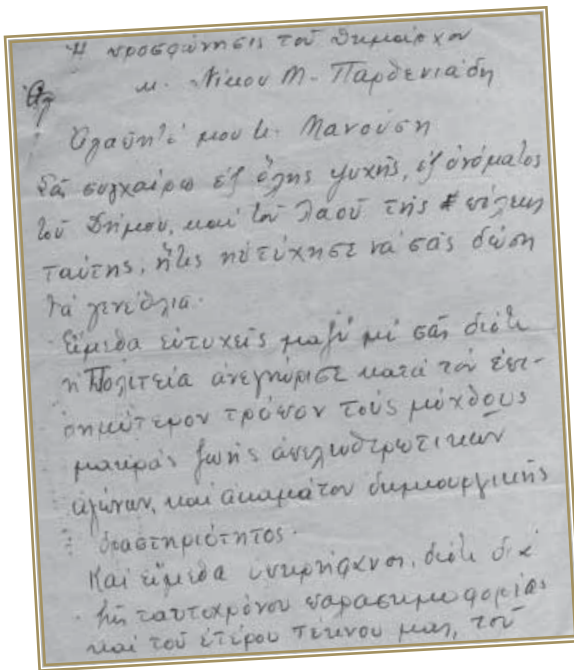 Ἡ προσφώνησις τοῦ Δημάρχου
κ. Νίκου Μ. Παρθενιάδη
Ἀγαπητέ μου κ. Μανούση
Σᾶς συγχαίρω ἐξ ὅλης ψυχῆς, ἐξ ὀνόματος
τοῦ Δήμου, καί τοῦ λαοῦ τῆς πόλεως
ταύτης, ἥτις ηὐτύχησε νά σᾶς δώσῃ
τά γενέθλια.
Εἴμεθα εὐτυχεῖς μαζύ μέ σᾶς διότι
ἡ Πολιτεία ἀνεγνώρισε κατά τόν ἐπι-
σημώτερον τρόπον τούς μόχθους
μακρᾶς ζωῆς ἀπελευθερωτικῶν
ἀγώνων, καί ἀκαμάτου δημιουργικῆς
δραστηριότητος.
Καί εἴμεθα ὑπερήφανοι, διότι διά
τῆς ταυτοχρόνου παρασημοφορίας
καί τοῦ ἑτέρου τέκνου μας, τοῦ